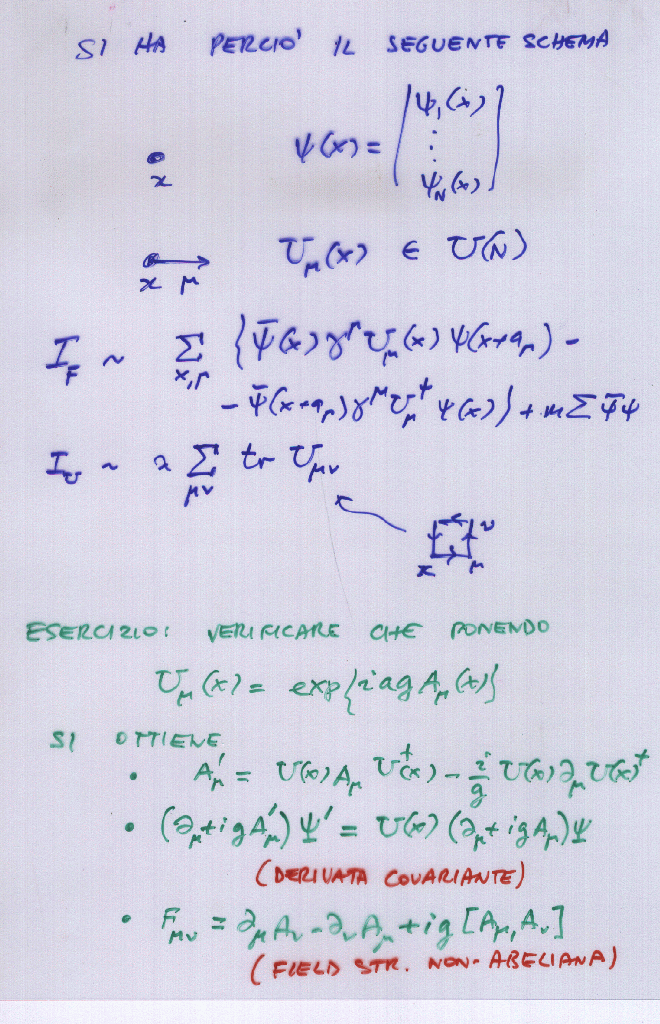 SI HA PERCIO' IL SEGUENTE SCHEMA
x ψ(x) = (ψ₁(x) ⋮ ψ_N(x))
x μ U_μ(x) ∈ U(N)
I_F ~ Σ_{x,μ} {ψ̄(x) γ^μ U_μ(x) ψ(x+a_μ) -
- ψ̄(x+a_μ) γ^μ U_μ^† ψ(x)} + m Σ ψ̄ψ
I_U ~ λ Σ_{μν} tr U_{μν}
x μ ν
ESERCIZIO: VERIFICARE CHE PONENDO
U_μ(x) = exp{iagA_μ(x)}
SI OTTIENE
• A'_μ = U(x)A_μ U^†(x) - i/g U(x)∂_μ U(x)^†
• (∂_μ + igA'_μ)Ψ' = U(x)(∂_μ + igA_μ)Ψ
(DERIVATA COVARIANTE)
• F_{μν} = ∂_μ A_ν - ∂_ν A_μ + ig[A_μ, A_ν]
(FIELD STR. NON-ABELIANA)